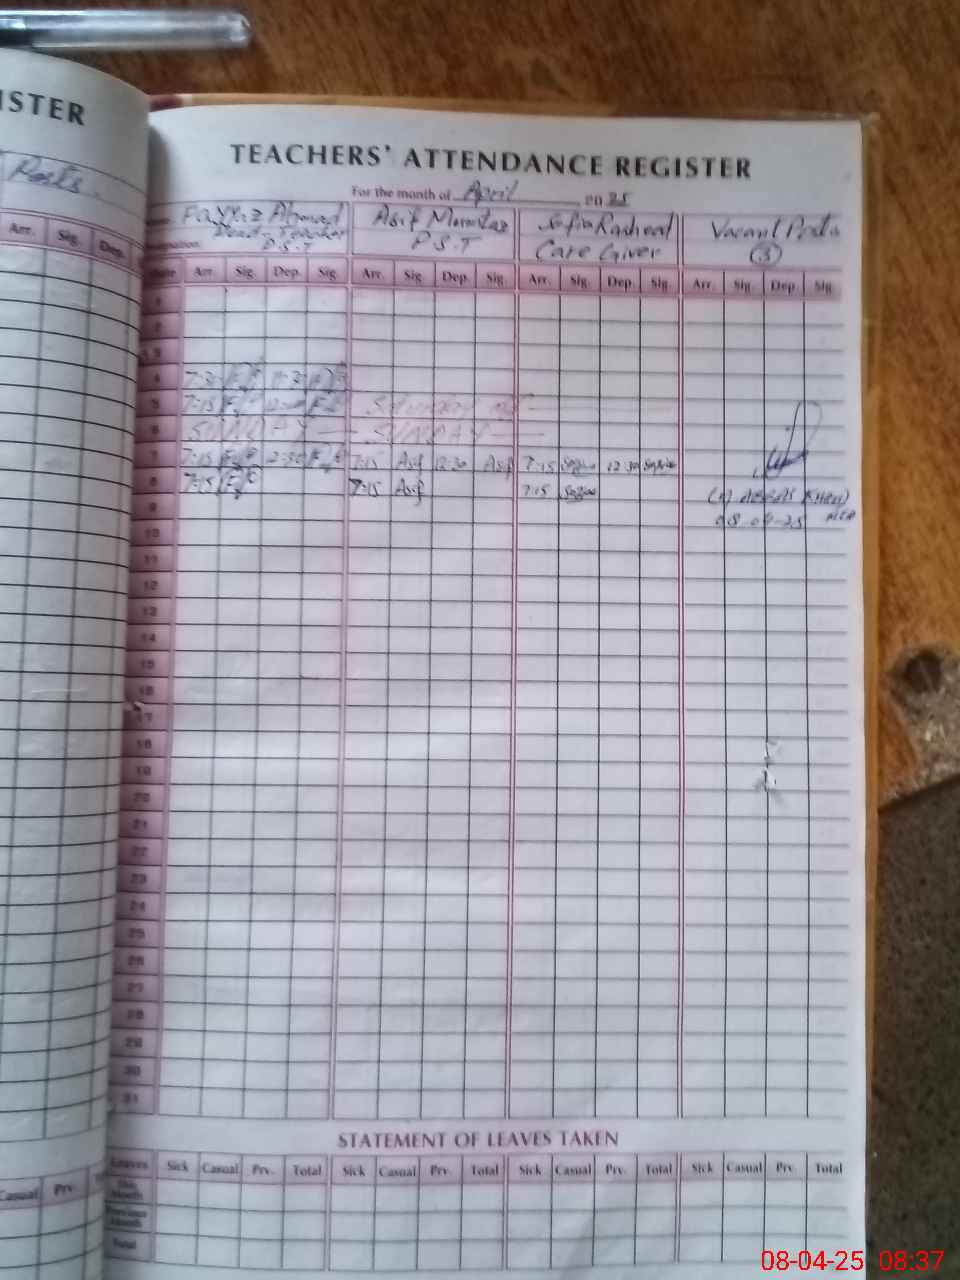 ISTER
Posts.
Arr. Sig. Dep.
TEACHERS' ATTENDANCE REGISTER
For the month of April 20 25
Fayyaz Ahmad Asif Mumtaz Sofia Rasheed Vacant Posts
Head-Teacher P.S.T Care Giver (3)
P.S.T
Arr. Sig. Dep. Sig. Arr. Sig. Dep. Sig. Arr. Sig. Dep. Sig. Arr. Sig. Dep. Sig.
1
2
3
4 7:30 11:30
5 7:15 Saturday off
6 SUNDAY SUNDAY
7 7:15 12:30 7:15 Asif 12:30 Asif 7:15 12:30
8 7:15 7:15 Asif 7:15
ABBAS KHAN)
9
08-04-25 MEA
10
11
12
13
14
15
16
17
18
19
20
21
22
23
24
25
26
27
28
29
30
31
STATEMENT OF LEAVES TAKEN
Leaves Sick Casual Prv. Total Sick Casual Prv. Total Sick Casual Prv. Total Sick Casual Prv. Total
This Month
Previous Month
Total
Casual Prv.
08-04-25 08:37